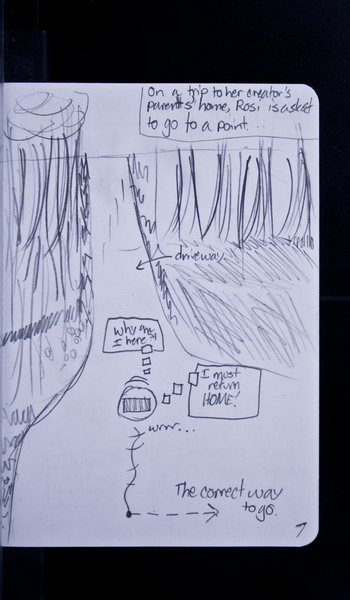 On a trip to her creator's
parents home, Rosi is asked
to go to a point...
driveway
Why am
I here?!
I must
return
HOME!
wrrr...
The correct way
to go.
7